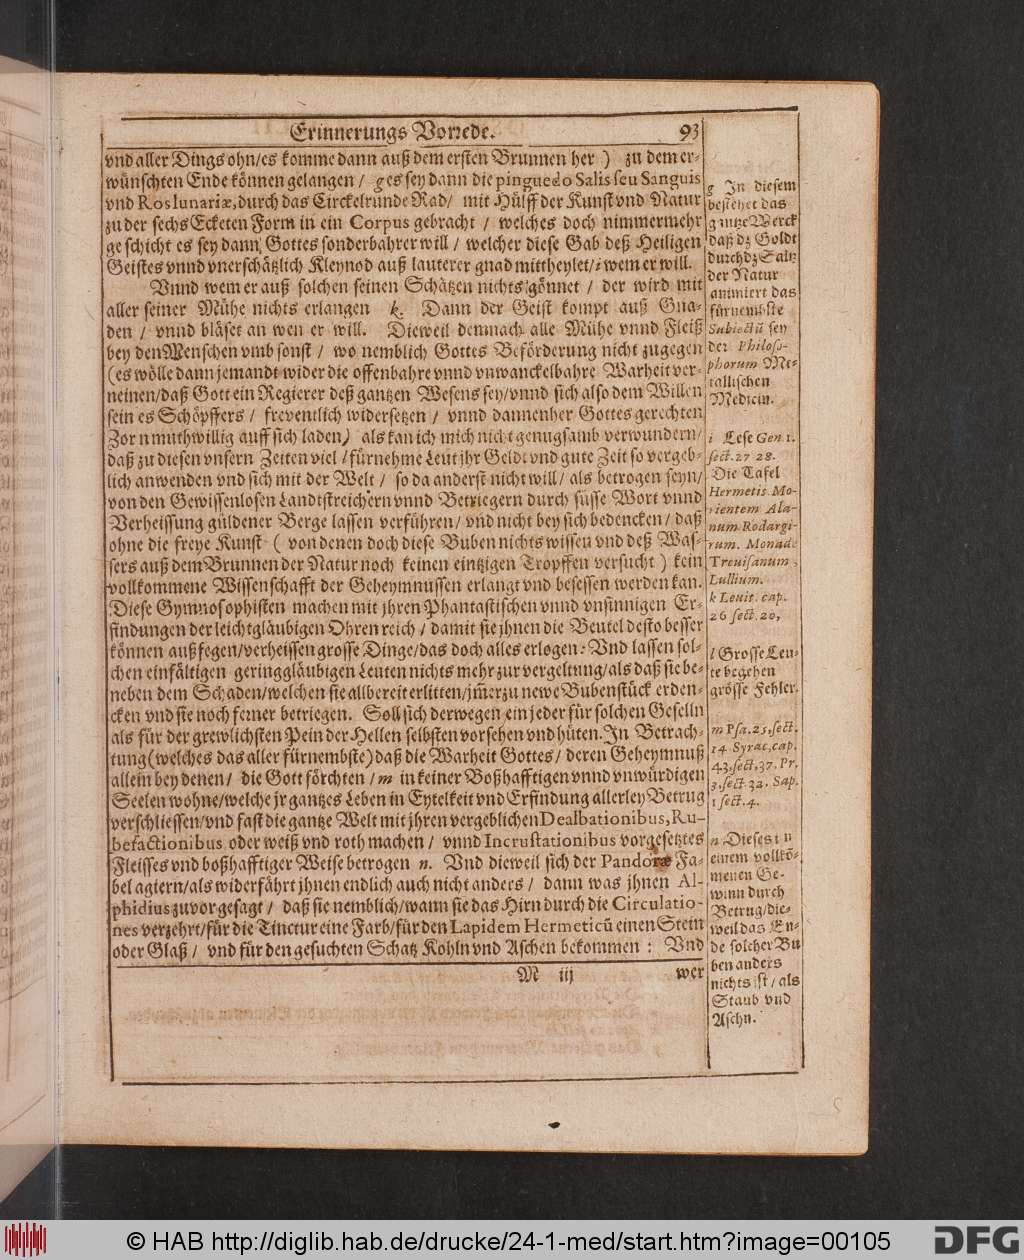 Erinnerungs Vorrede. 93
vnd aller Dings ohn/es komme dann auß dem ersten Brunnen her ) zu dem er-
wünschten Ende können gelangen / g es sey dann die pinguedo Salis seu Sanguis
vnd Ros lunariæ, durch das Circkelrunde Rad/ mit Hülff der Kunst vnd Natur
zu der sechs Ecketen Form in ein Corpus gebracht / welches doch nimmermehr
geschicht es sey dann Gottes sonderbahrer will / welcher diese Gab deß Heiligen
Geistes vnnd vnerschätzlich Kleynod auß lauterer gnad mittheylet/ i wem er will.
Vnnd wem er auß solchen seinen Schätzen nichts gönnet / der wird mit
aller seiner Mühe nichts erlangen k. Dann der Geist kompt auß Gna-
den / vnnd bläset an wen er will. Dieweil demnach alle Mühe vnnd Fleiß
bey den Menschen vmb sonst / wo nemblich Gottes Beförderung nicht zugegen
(es wölle dann jemandt wider die offenbahre vnnd vnwanckelbahre Warheit ver-
neinen/daß Gott ein Regierer deß gantzen Wesens sey/vnnd sich also dem Willen
seines Schöpffers / freventlich widersetzen / vnnd dannenher Gottes gerechten
Zorn muthwillig auff sich laden) als kan ich mich nicht genugsamb verwundern/
daß zu diesen vnsern Zeiten viel / fürnehme Leut jhr Geldt vnd gute Zeit so vergeb-
lich anwenden vnd sich mit der Welt / so da anderst nicht will / als betrogen seyn/
von den Gewissenlosen Landtstreichern vnnd Betriegern durch süsse Wort vnnd
Verheissung güldener Berge lassen verführen / vnd nicht bey sich bedencken / daß
ohne die freye Kunst ( von denen doch diese Buben nichts wissen vnd deß Was-
sers auß dem Brunnen der Natur noch keinen eintzigen Tropffen versucht ) kein
vollkommene Wissenschafft der Geheymnussen erlangt vnd besessen werden kan.
Diese Gymnosophisten machen mit jhren Phantastischen vnnd vnsinnigen Er-
findungen der leichtgläubigen Ohren reich / damit sie jhnen die Beutel desto besser
können außfegen/verheissen grosse Dinge/das doch alles erlogen: Vnd lassen sol-
chen einfältigen geringgläubigen Leuten nichts mehr zur vergeltung/als daß sie be-
neben dem Schaden/welchen sie allbereit erlitten/jm̃erzu newe Bubenstück erden-
cken vnd sie noch ferner betriegen. Soll sich derwegen ein jeder für solchen Geselln
als für der grewlichsten Pein der Hellen selbsten vorsehen vnd hüten. In Betrach-
tung (welches das aller fürnembste) daß die Warheit Gottes / deren Geheymnuß
allein bey denen / die Gott förchten / m in keiner Boßhafftigen vnnd vnwürdigen
Seelen wohne/welche jr gantzes Leben in Eytelkeit vnd Erfindung allerley Betrug
verschliessen/vnd fast die gantze Welt mit jhren vergeblichen Dealbationibus, Ru-
befactionibus oder weiß vnd roth machen / vnnd Incrustationibus vorgesetztes
Fleisses vnd boßhafftiger Weise betrogen n. Vnd dieweil sich der Pandoræ Fa-
bel agiern/als widerfährt jhnen endlich auch nicht anders / dann was jhnen Al-
phidius zuvor gesagt / daß sie nemblich/wann sie das Hirn durch die Circulatio-
nes verzehrt/für die Tinctur eine Farb/für den Lapidem Hermeticũ einen Stein
oder Glaß / vnd für den gesuchten Schatz Kohln vnd Aschen bekommen : Vnd
M iij wer
g In diesem
bestehet das
gantze Werck
daß dz Goldt
durch dz Saltz
der Natur
animiert das
fürnembste
Subiectũ sey
der Philoso-
phorum Me-
tallischen
Medicin.
i Lese Gen. 1.
sect. 27 28.
Die Tafel
Hermetis Mo-
rientem Ala-
num Rodargi-
rum. Monade
Treuisanum,
Lullium.
k Leuit. cap.
26 sect. 20,
l Grosse Leu-
te begehen
grösse Fehler.
m Psa. 25, sect.
14 Syrac, cap.
43, sect, 37. Pr.
3. sect 32. Sap.
1 sect. 4.
n Dieses in
einem vollkõ-
menen Ge-
winn durch
Betrug/die-
weil das En-
de solcher Bu
ben anders
nichts ist / als
Staub vnd
Aschn.
© HAB http://diglib.hab.de/drucke/24-1-med/start.htm?image=00105
DFG